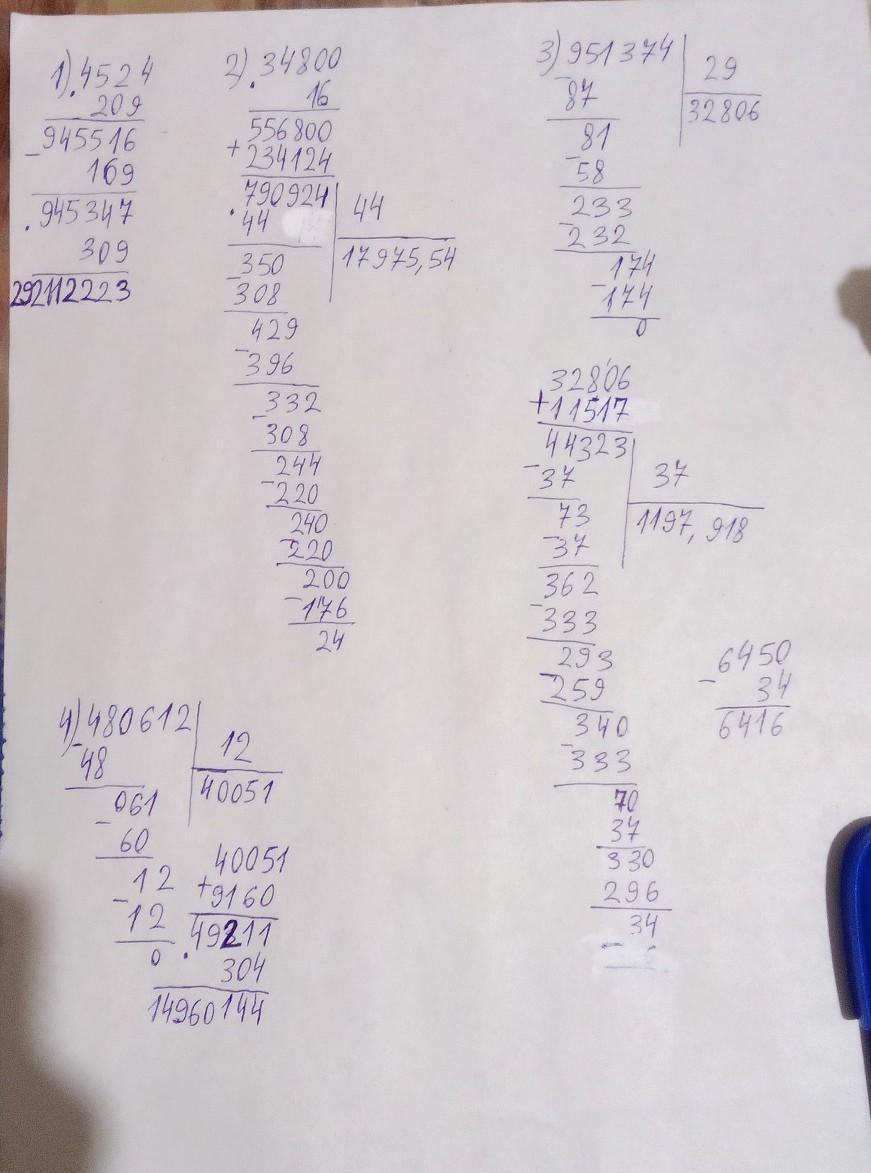 1) . 4524
209
- 945516
169
. 945347
309
292112223
2) . 34800
16
+ 556800
234124
790924 | 44
- 44
17975,54
- 350
308
429
- 396
- 332
308
- 244
220
240
- 220
200
- 176
24
3) - 951374 | 29
87
32806
81
- 58
233
- 232
174
- 174
0
32806
+ 11517
44323 | 37
- 37
1197,918
73
- 37
362
- 333
293
- 259
340
- 333
70
37
330
296
34
- 6450
34
6416
4) - 480612 | 12
48
40051
061
- 60
12
- 12
0
40051
+ 9160
. 49211
304
14960144